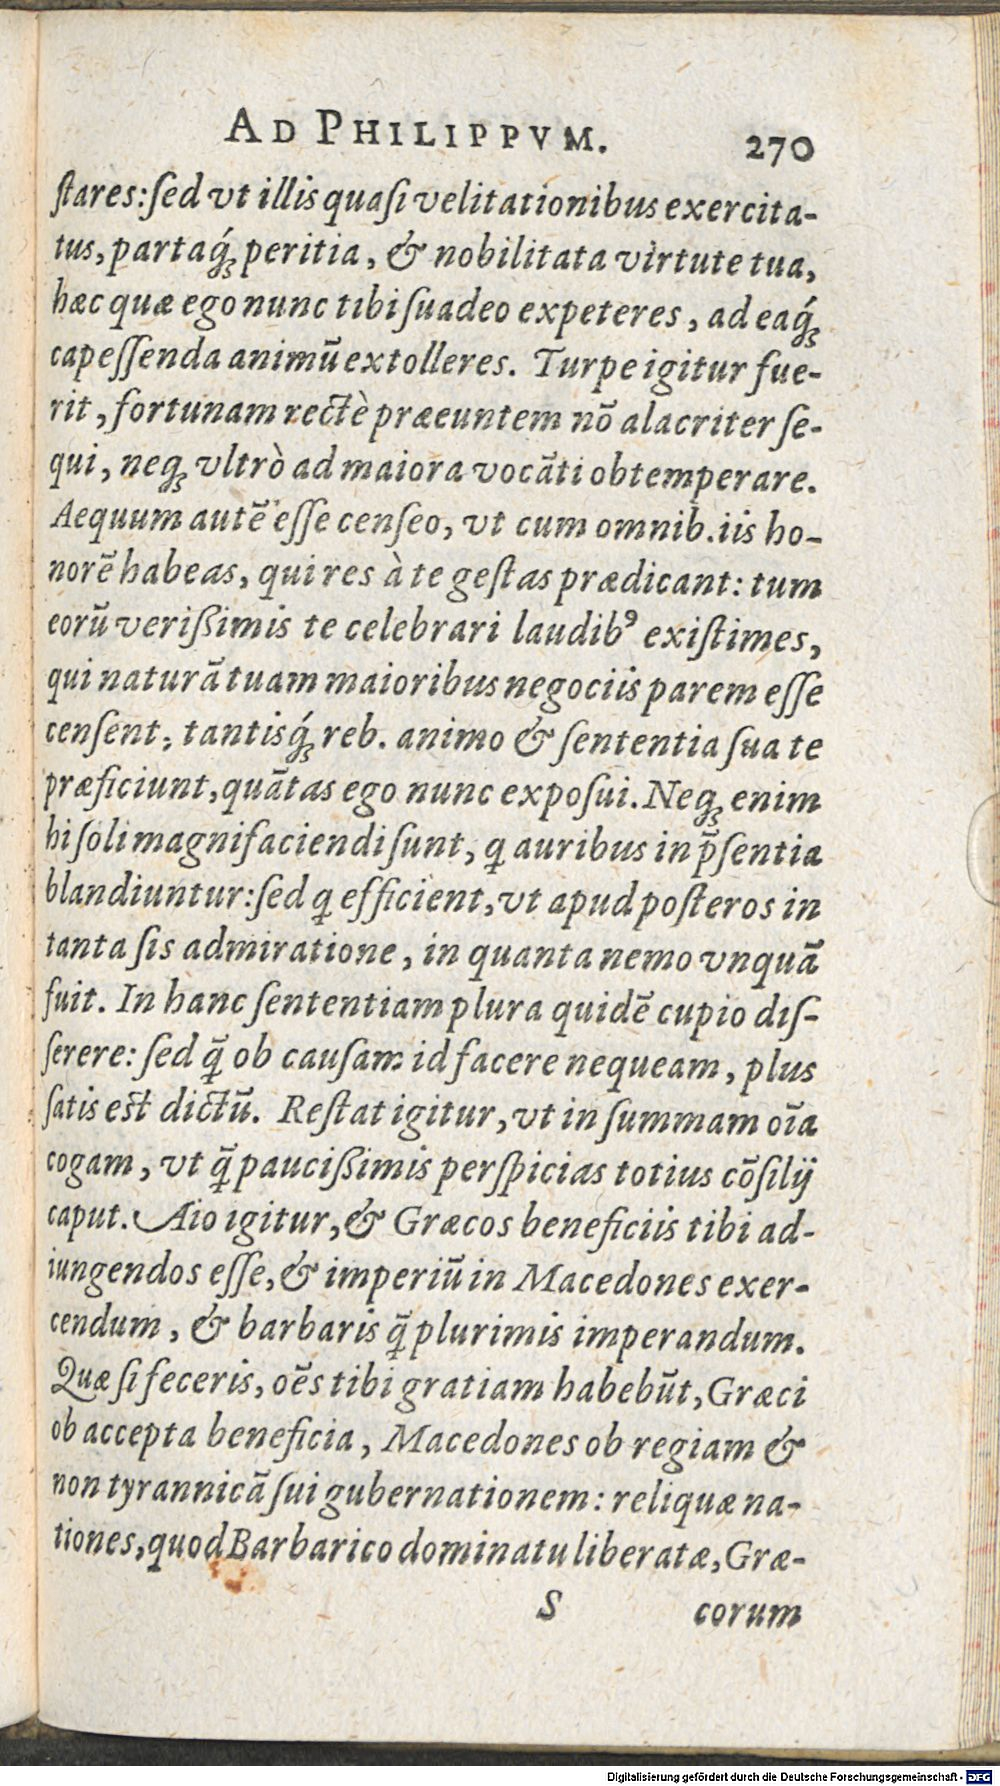 AD PHILIPPVM. 270
ſtares: ſed vt illis quaſi velitationibus exercita-
tus, partaq́ꝫ peritia, & nobilitata virtute tua,
hæc quæ ego nunc tibi ſuadeo expeteres, ad eaq́ꝫ
capeſſenda animũ extolleres. Turpe igitur fue-
rit, fortunam rectè præeuntem nõ alacriter ſe-
qui, neqꝫ vltrò ad maiora vocãti obtemperare.
Aequum autẽ eſſe cenſeo, vt cum omnib. iis ho-
norẽ habeas, qui res à te geſtas prædicant: tum
eorũ verißimis te celebrari laudibꝰ exiſtimes,
qui naturã tuam maioribus negociis parem eſſe
cenſent, tantisq́ꝫ reb. animo & ſententia ſua te
præficiunt, quãtas ego nunc expoſui. Neqꝫ enim
hi ſoli magnifaciendi ſunt, q auribus in p̃ſentia
blandiuntur: ſed q efficient, vt apud poſteros in
tanta ſis admiratione, in quanta nemo vnquã
fuit. In hanc ſententiam plura quidẽ cupio diſ-
ſerere: ſed q̃ ob cauſam id facere nequeam, plus
ſatis est dictũ. Reſtat igitur, vt in ſummam oĩa
cogam, vt q̃ paucißimis perſpicias totius cõſilij
caput. Aio igitur, & Græcos beneficiis tibi ad-
iungendos eſſe, & imperiũ in Macedones exer-
cendum, & barbaris q̃ plurimis imperandum.
Quæ ſi feceris, oẽs tibi gratiam habebũt, Græci
ob accepta beneficia, Macedones ob regiam &
non tyrannicã ſui gubernationem: reliquæ na-
tiones, quod Barbarico dominatu liberatæ, Græ-
S corum
Digitalisierung gefördert durch die Deutsche Forschungsgemeinschaft - DFG